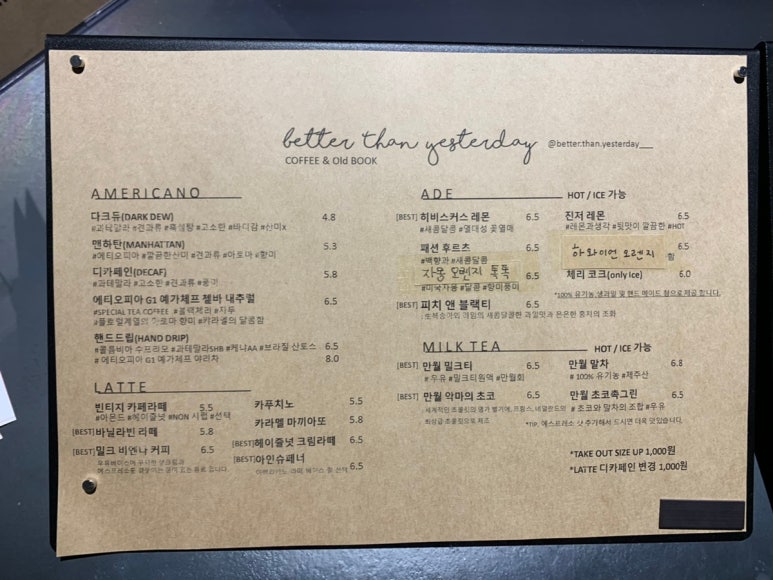 better than yesterday @better.than.yesterday__
COFFEE & Old BOOK
AMERICANO
다크듀(DARK DEW) 4.8
#과테말라 #견과류 #묵직함 #고소한 #바디감 #산미x
맨하탄(MANHATTAN) 5.3
#에티오피아 #깔끔한산미 #견과류 #아로마 #향미
디카페인(DECAF) 5.8
#과테말라 #고소한 #견과류 #풍미
에티오피아 G1 예가체프 첼바 내추럴 6.5
#SPECIAL TEA COFFEE #블랙체리 #자두
#플로럴계열의 아로마 향미 #캬라멜의 달콤함
핸드드립(HAND DRIP)
#콜롬비아 수프리모 #과테말라SHB #케냐AA #브라질 산토스 6.5
#에티오피아 G1 예가체프 아리차 8.0
LATTE
빈티지 카페라떼 5.5
#아몬드 #헤이즐넛 #NON 시럽 #선택
[BEST]바닐라빈 라떼 5.8
[BEST]밀크 비엔나 커피 6.5
카푸치노 5.5
카라멜 마끼아또 5.8
[BEST]헤이즐넛 크림라떼 6.5
[BEST]아인슈페너
6.5
ADE HOT / ICE 가능
[BEST] 히비스커스 레몬 6.5
#새콤달콤 #열대성 꽃열매
패션 후르츠 6.5
#백향과 #새콤달콤
자몽 오렌지 톡톡 6.5
#미국자몽 #달콤 #향미풍미
[BEST] 피치 앤 블랙티 6.5
진저 레몬 6.5
#레몬과생각 #뒷맛이 깔끔한 #HOT
하와이언 오렌지 6.5
함
체리 코크(only Ice) 6.0
*100% 유기농,생과일 및 핸드 메이드 청으로 제공 합니다.
MILK TEA HOT / ICE 가능
[BEST] 만월 밀크티 6.5
#우유 #밀크티원액 #만월회
[BEST] 만월 악마의 초코 6.5
만월 말차 6.8
# 100% 유기농 #제주산
만월 초코축그린 6.5
# 초코와 말차의 조합 #우유
*TIP. 에스프레소 샷 추가해서 드시면 더욱 맛있습니다.
*TAKE OUT SIZE UP 1,000원
*LATTE 디카페인 변경 1,000원